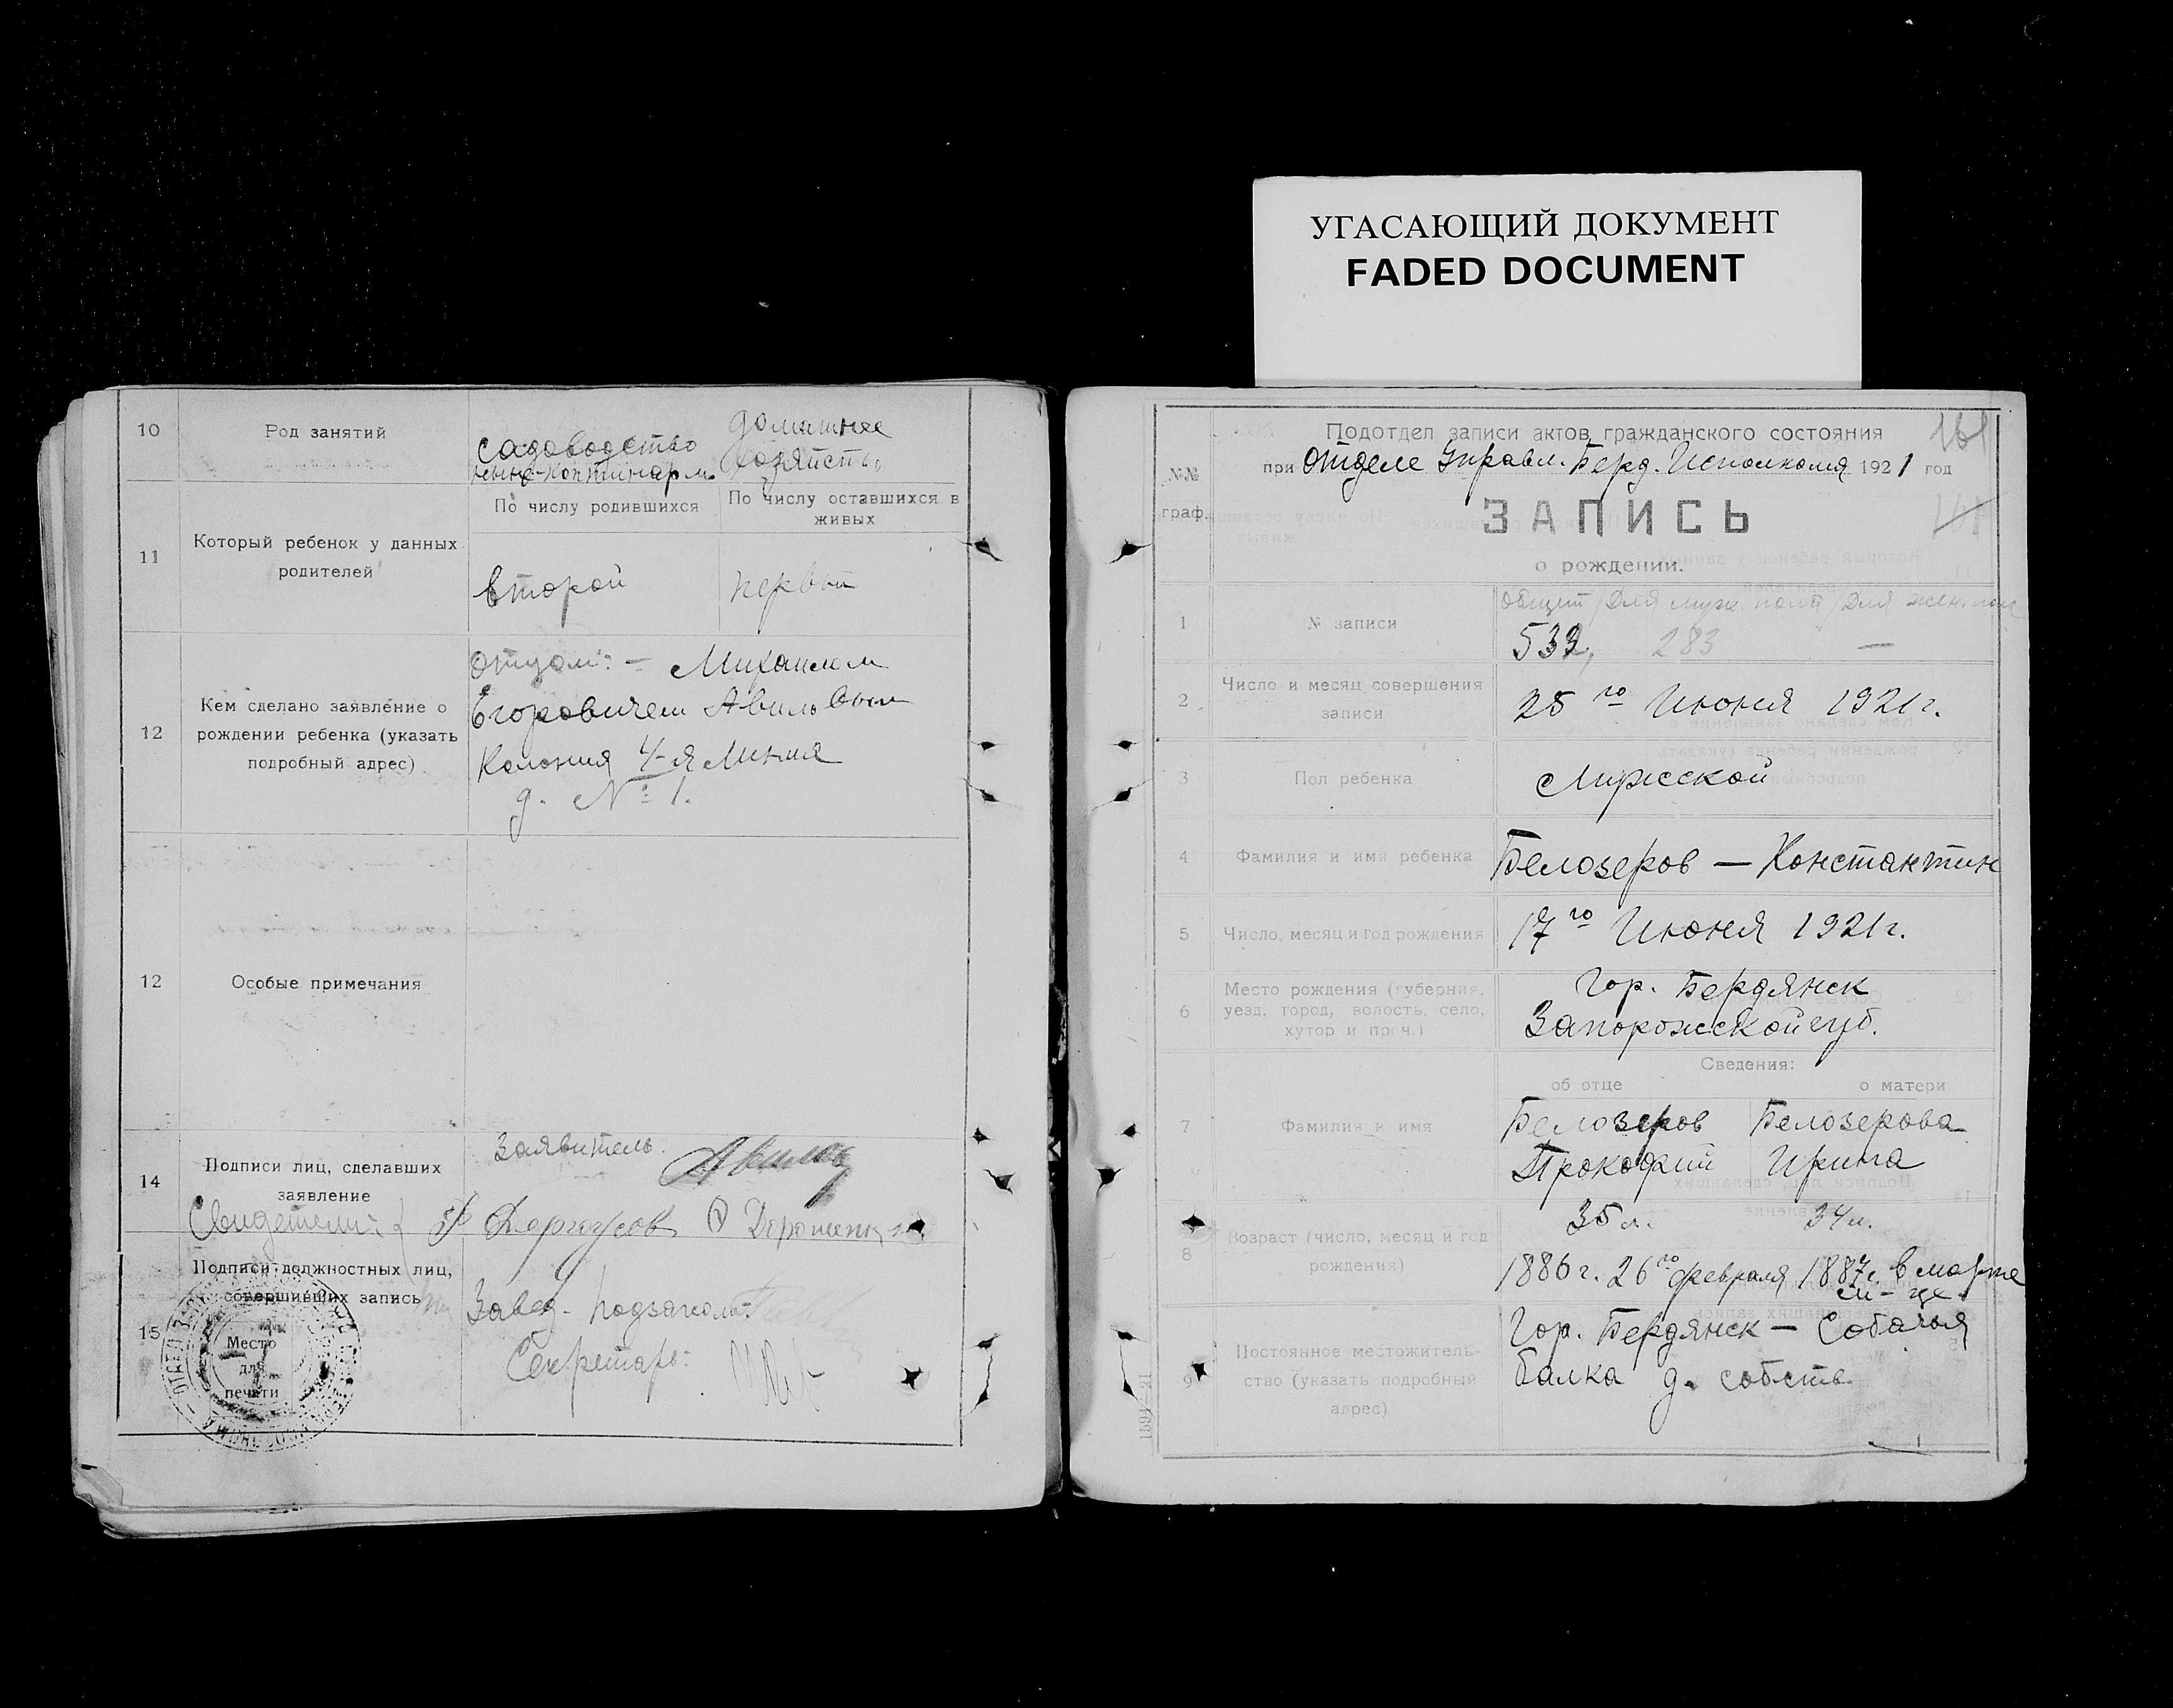 УГАСАЮЩИЙ ДОКУМЕНТ
FADED DOCUMENT
10
Род занятий
садоводство
домашнее
хозяйство
11
Который ребенок у данных
родителей
По числу родившихся
По числу оставшихся в
живых
второй
первый
12
Кем сделано заявление о
рождении ребенка (указать
подробный адрес)
отцом: — Михаилом
Егоровичем Авиловым
Колония 4-я Линия
д. № 1.
12
Особые примечания
14
Подписи лиц, сделавших
заявление
Заявитель Авилов
Свидетели:
15
Подписи должностных лиц,
совершивших запись
Место
для
печати
Завед.
Секретарь:
161
Подотдел записи актов гражданского состояния
при Отделе Управл. Берд. Исполкома 1921 год
№№
граф.
ЗАПИСЬ
о рождении.
1
№ записи
общий / Для муж. пола / Для жен. пола
532, 283 —
2
Число и месяц совершения
записи
25 го Июня 1921 г.
3
Пол ребенка
Мужской
4
Фамилия и имя ребенка
Белозеров — Константин
5
Число, месяц и год рождения
17 го Июня 1921 г.
6
Место рождения (губерния,
уезд, город, волость, село,
хутор и проч.)
Гор. Бердянск
Запорожской губ.
Сведения:
об отце
о матери
7
Фамилия и имя
Белозеров
Прокофий
Белозерова
Ирина
8
Возраст (число, месяц и год
рождения)
35 л.
34 л.
1886 г. 26 го февраля
1887 г. в марте
м-це
9
Постоянное местожитель-
ство (указать подробный
адрес)
Гор. Бердянск — Собачья
балка д. собств.